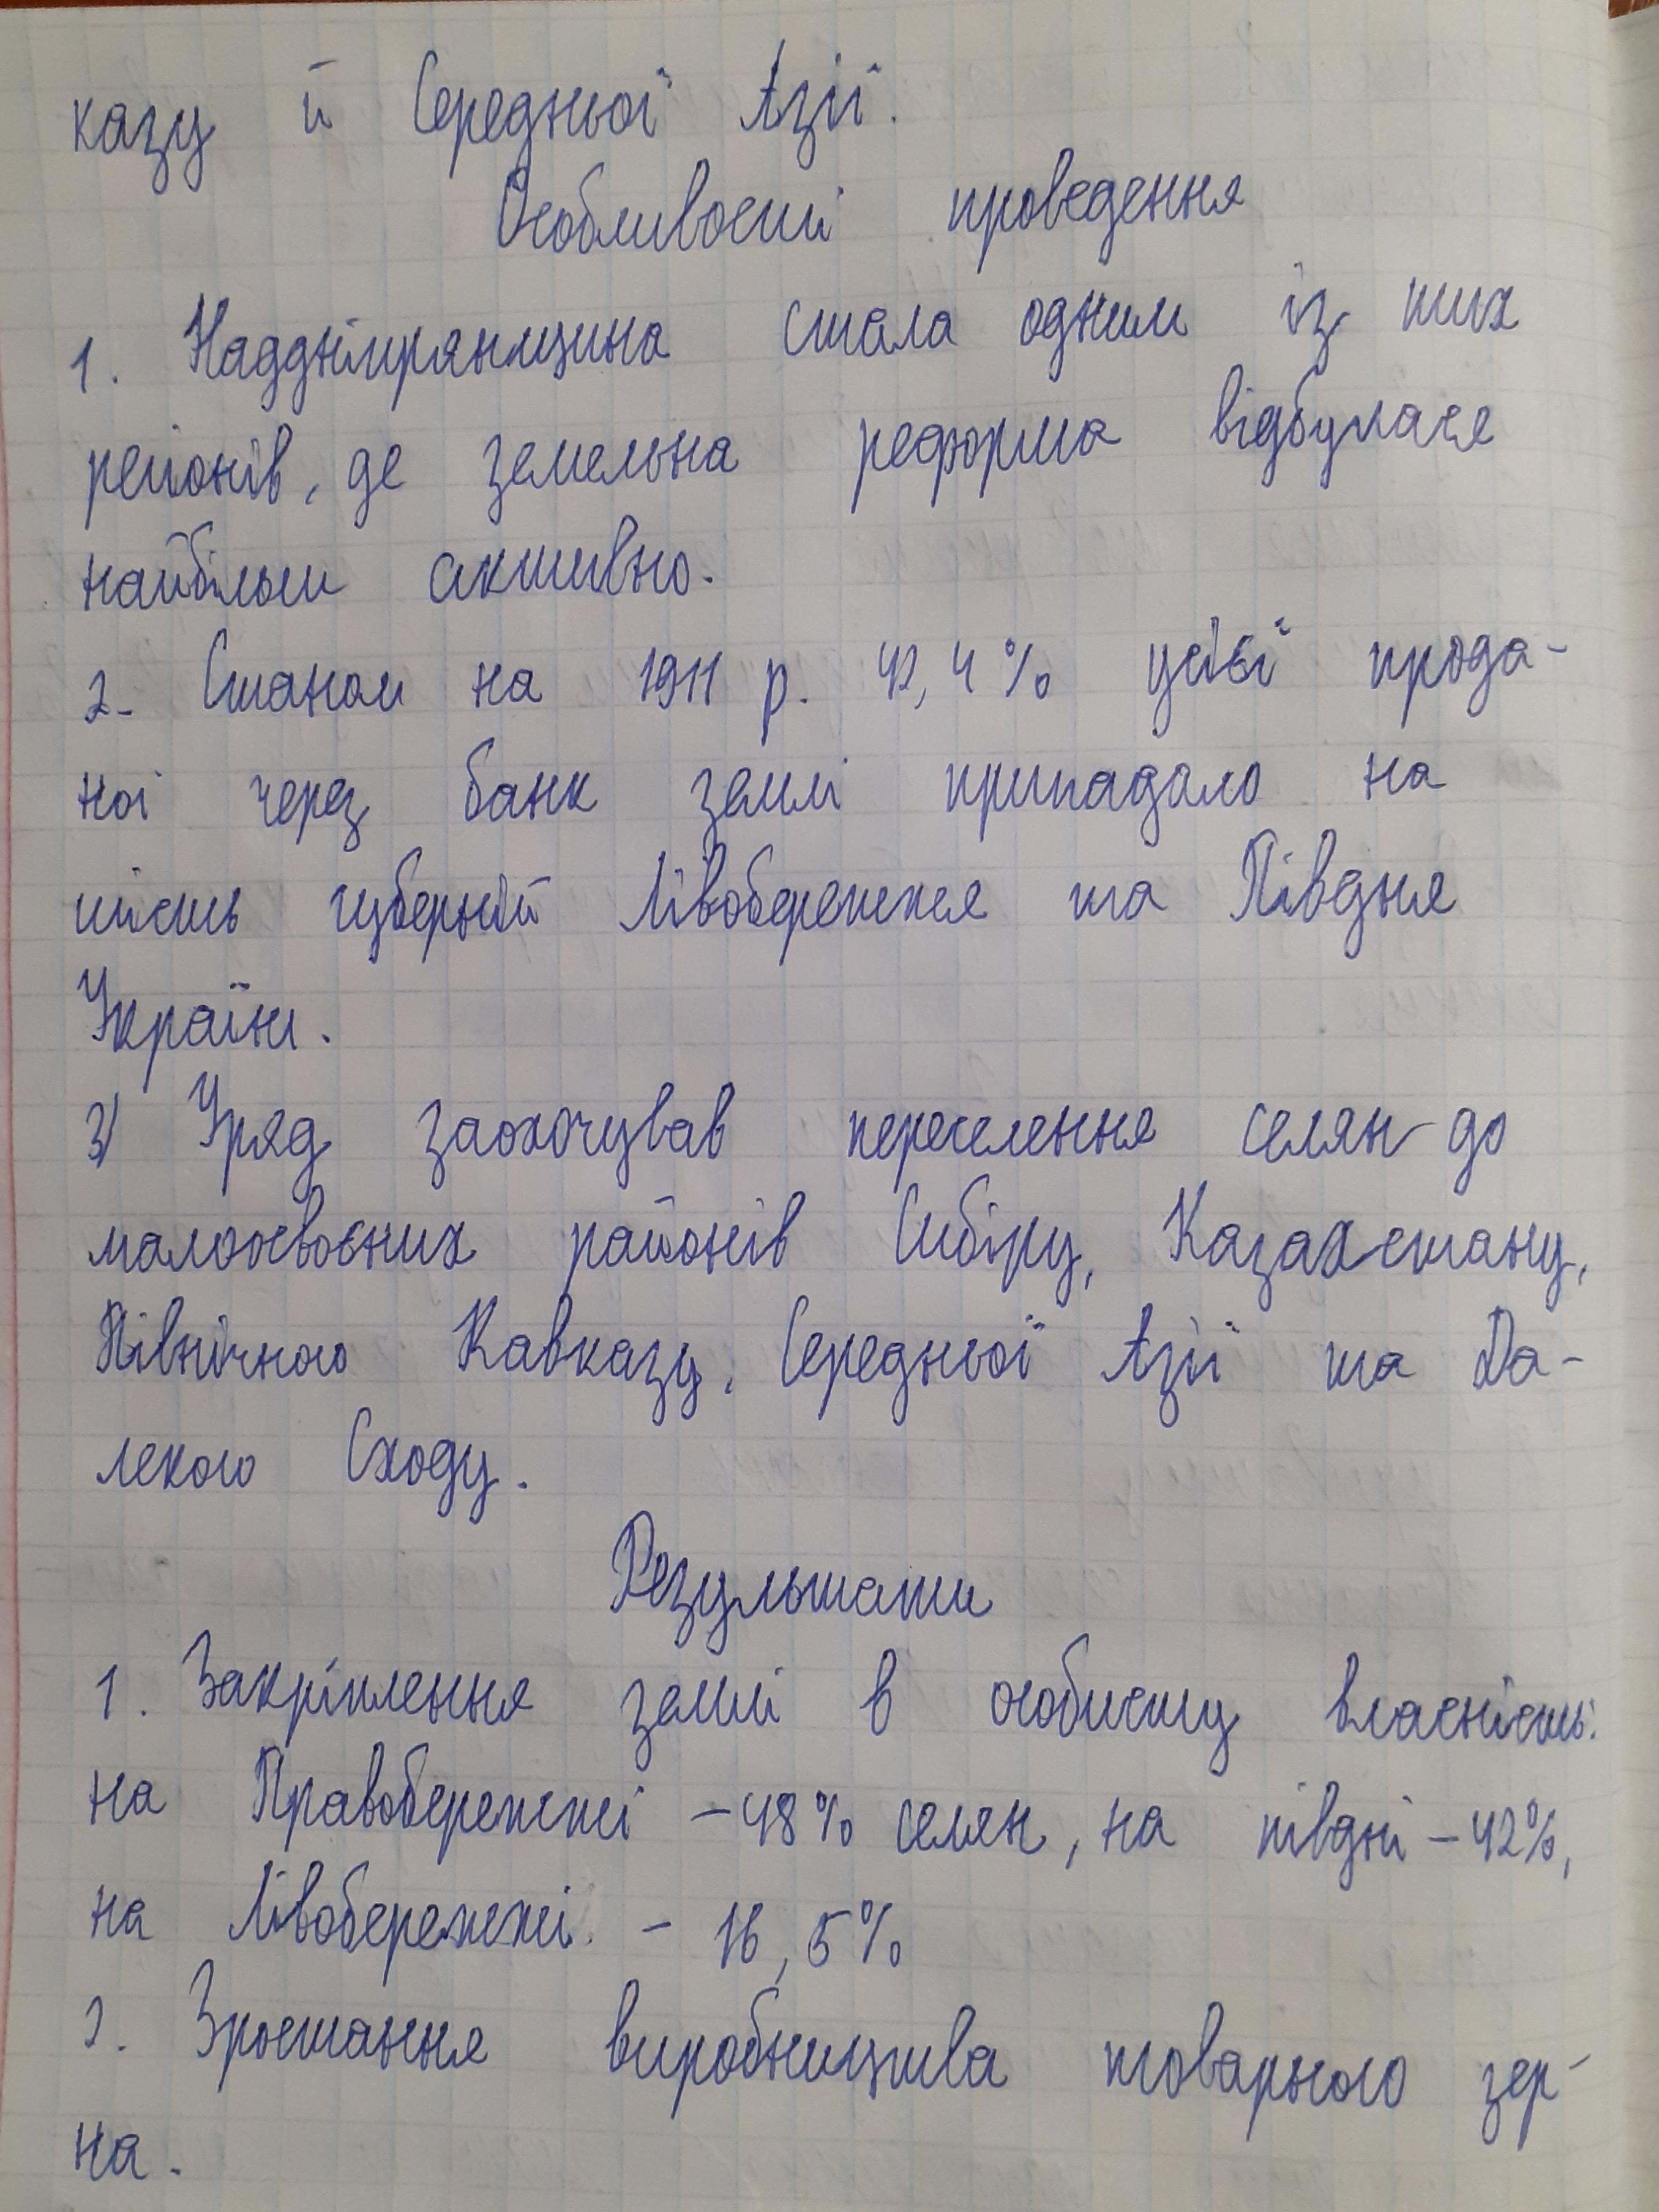 казу й Середньої Азії.
Особливості проведення
1. Наддніпрянщина стала одним із тих
регіонів, де земельна реформа відбулася
найбільш активно.
2. Станом на 1911 р. 42,4% усієї прода-
ної через банк землі припадало на
шість губерній Лівобережжя та Півдня
України.
3) Уряд заохочував переселення селян до
малоосвоєних районів Сибіру, Казахстану,
Північного Кавказу, Середньої Азії та Да-
лекого Сходу.
Результати
1. Закріплення землі в особисту власність:
на Правобережжі - 48% селян, на півдні - 42%,
на Лівобережжі - 16,5%
2. Зростання виробництва товарного зер-
на.